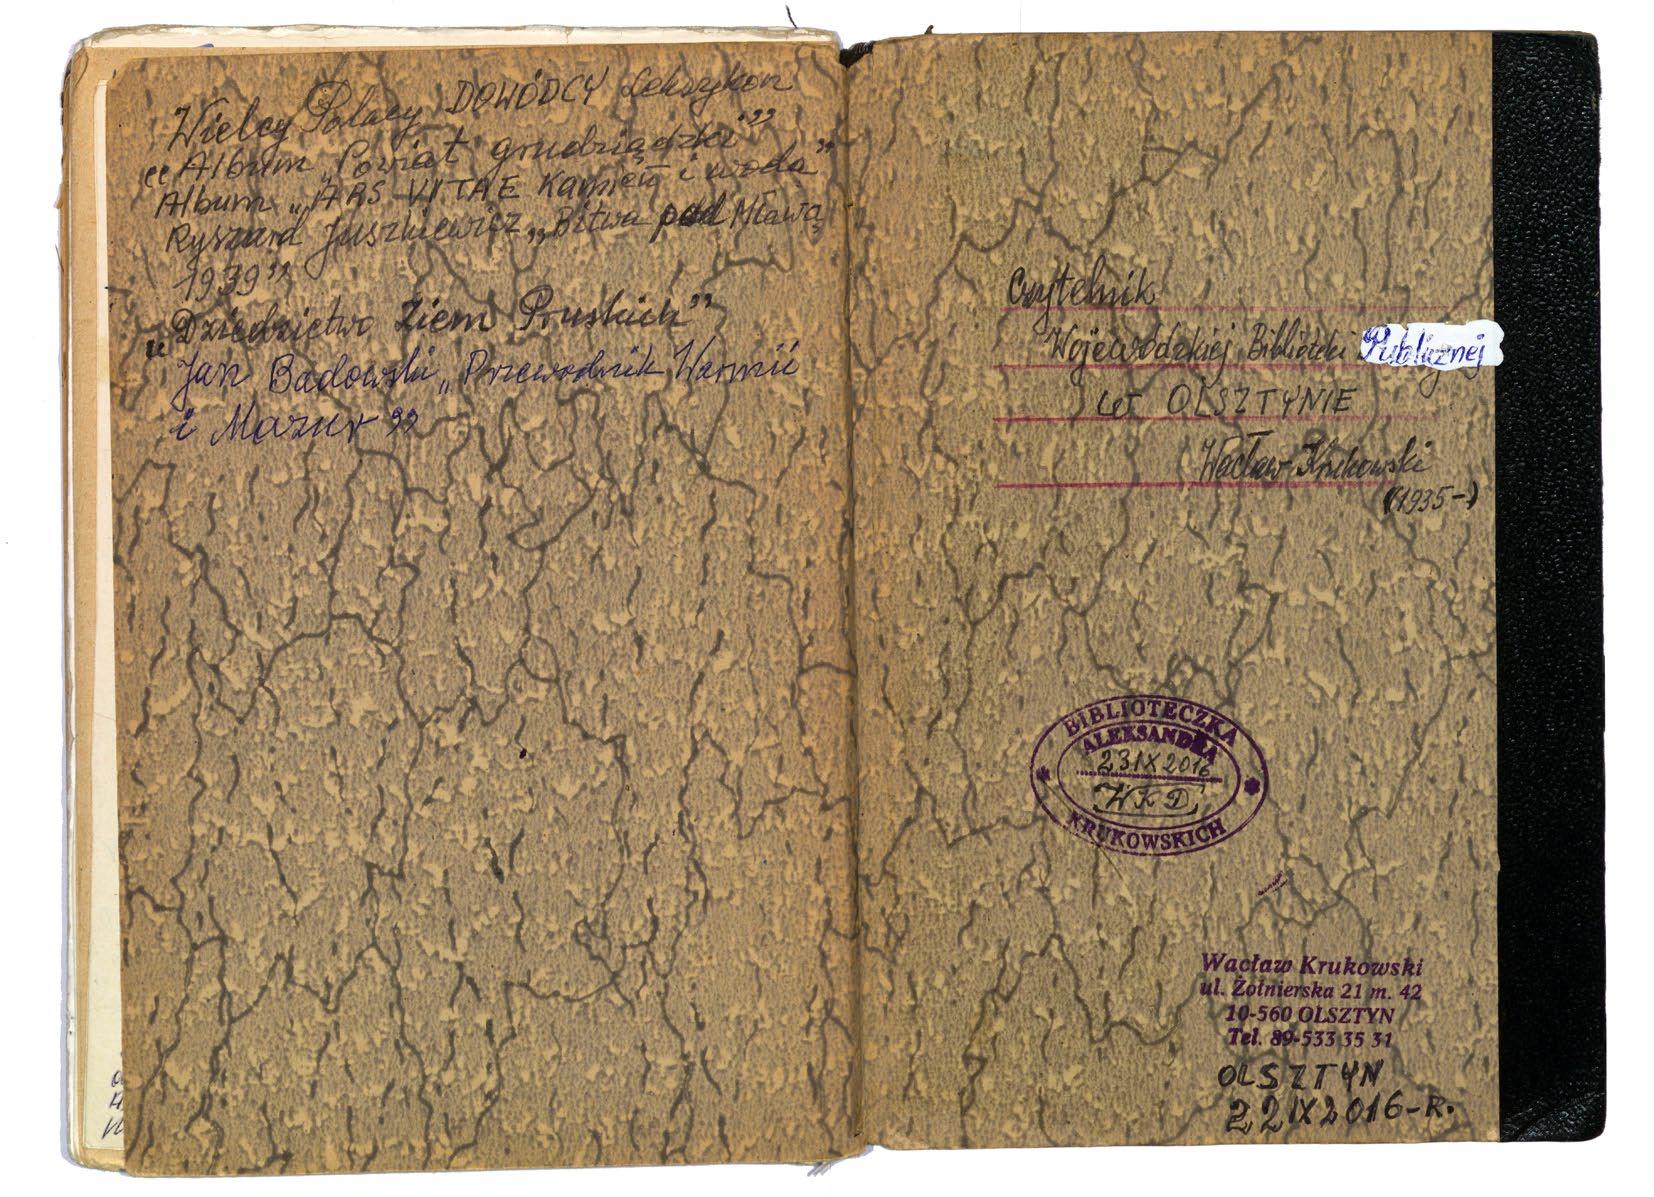 Wielcy Polacy DOWÓDCY Leksykon
„Album „Powiat grudziądzki”
Album „ARS VITAE Kamień i woda”
Ryszard Juszkiewicz „Bitwa pod Mławą
1939”
„Dziedzictwo Ziem Pruskich”
Jan Badowski „Przewodnik Warmii
i Mazur”
Czytelnik
Wojewódzkiej Biblioteki Publicznej
w OLSZTYNIE
Wacław Krukowski
(1935-)
BIBLIOTECZKA
ALEKSANDRA
23 IX 2016
WKD
KRUKOWSKICH
Wacław Krukowski
ul. Żołnierska 21 m. 42
10-560 OLSZTYN
Tel. 89-533 35 31
OLSZTYN
22 IX 2016-R.